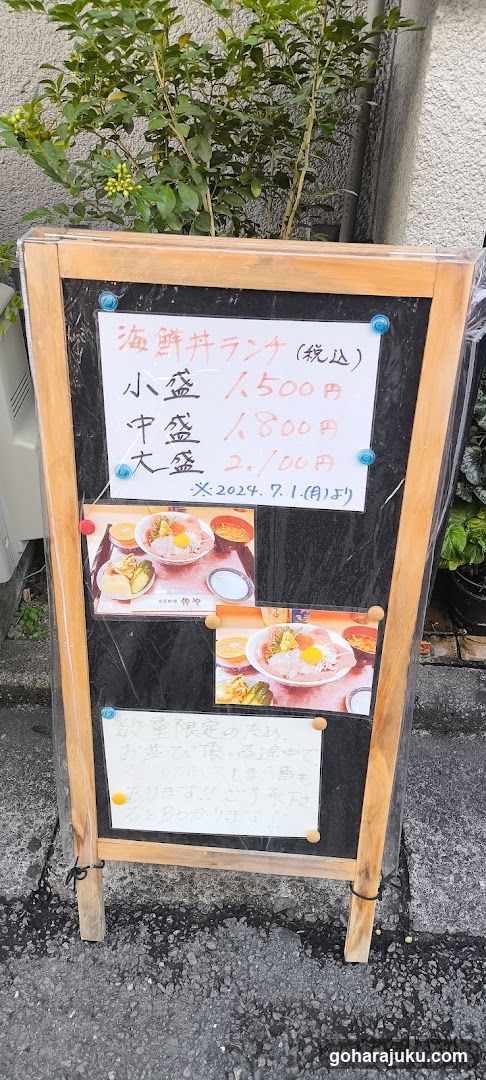 海鮮丼ランチ(税込)
小盛 1,500円
中盛 1,800円
大盛 2,100円
※2024.7.1.(月)より
数量限定のため、
お並び頂いる途中で
しまう事も
あります!! ご了承下さ
ると助かります!!
goharajuku.com